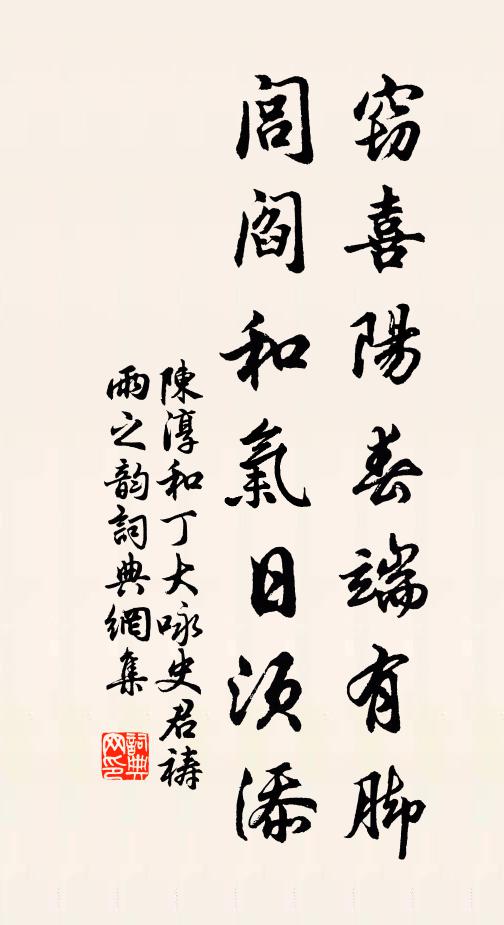 窃喜陽春端有脚
閭閻和氣日須添
陳淳和丁大咏史君禱
雨之韵詞典網集
詞典
网印